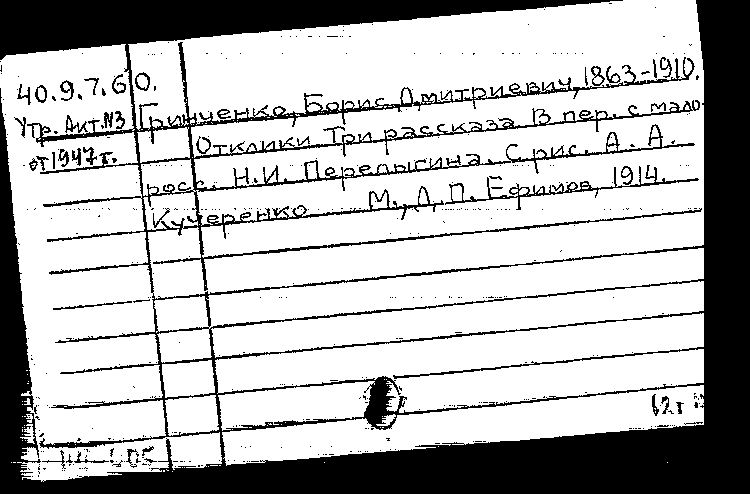 40.9.7.60.
Утр. Акт.N3
от 1947 г.
Гринченко, Борис Дмитриевич, 1863-1910.
Отклики Три рассказа В пер. с мало-
росс. Н.И. Перелыгина. С рис. А. А.
Кучеренко М., Д. П. Ефимов, 1914.
62 г